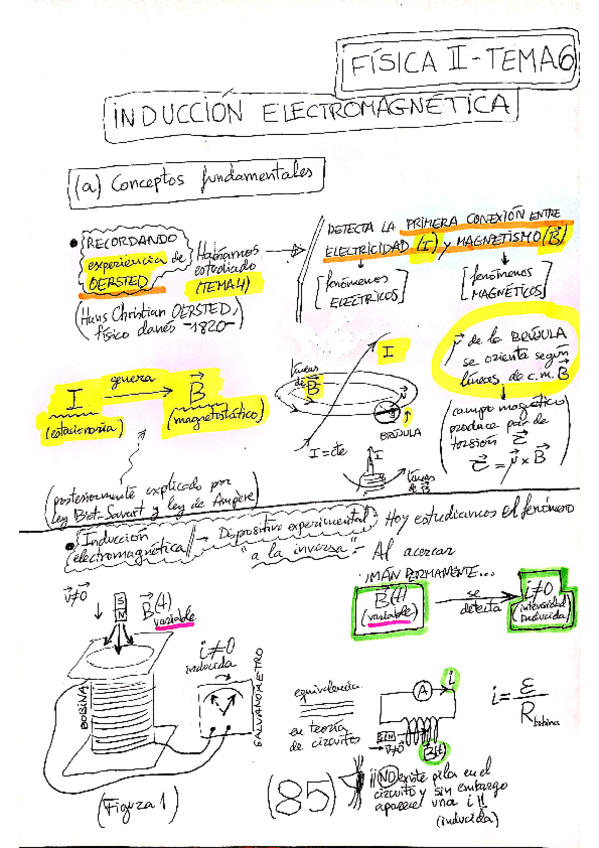 FÍSICA II - TEMA 6
INDUCCIÓN ELECTROMAGNÉTICA
(a) Conceptos fundamentales
• RECORDANDO
experiencia de
OERSTED
Habíamos
estudiado
(TEMA 4)
(Hans Christian OERSTED,
físico danés -1820-)
DETECTA LA PRIMERA CONEXIÓN ENTRE
ELECTRICIDAD (I) y MAGNETISMO (B⃗)
[fenómenos
ELÉCTRICOS]
[fenómenos
MAGNÉTICOS]
I
(estacionaria)
genera
B⃗
(magnetostático)
líneas
de B⃗
I
N
S
BRÚJULA
I = cte
I
líneas
de B⃗
μ⃗ de la BRÚJULA
se orienta según
líneas de c.m. B⃗
(campo magnético
produce par de
torsión τ⃗
τ⃗ = μ⃗ x B⃗)
(posteriormente explicado por
ley Biot-Savart y ley de Ampere)
• Inducción
electromagnética
→ Dispositivo experimental
"a la inversa":-
Hoy estudiamos el fenómeno
Al acercar
IMÁN PERMANENTE...
B⃗(t)
(variable)
se
detecta
i≠0
(intensidad
inducida)
v⃗≠0
S
N
B⃗(t)
variable
BOBINA
i≠0
inducida
GALVANÓMETRO
(Figura 1)
equivalencia
en teoría
de circuitos
A
i
S N
v⃗≠0
B⃗(t)
i = ε / R bobina
(85)
¡¡NO existe pila en el
circuito y sin embargo
aparece una i!!
(inducida)